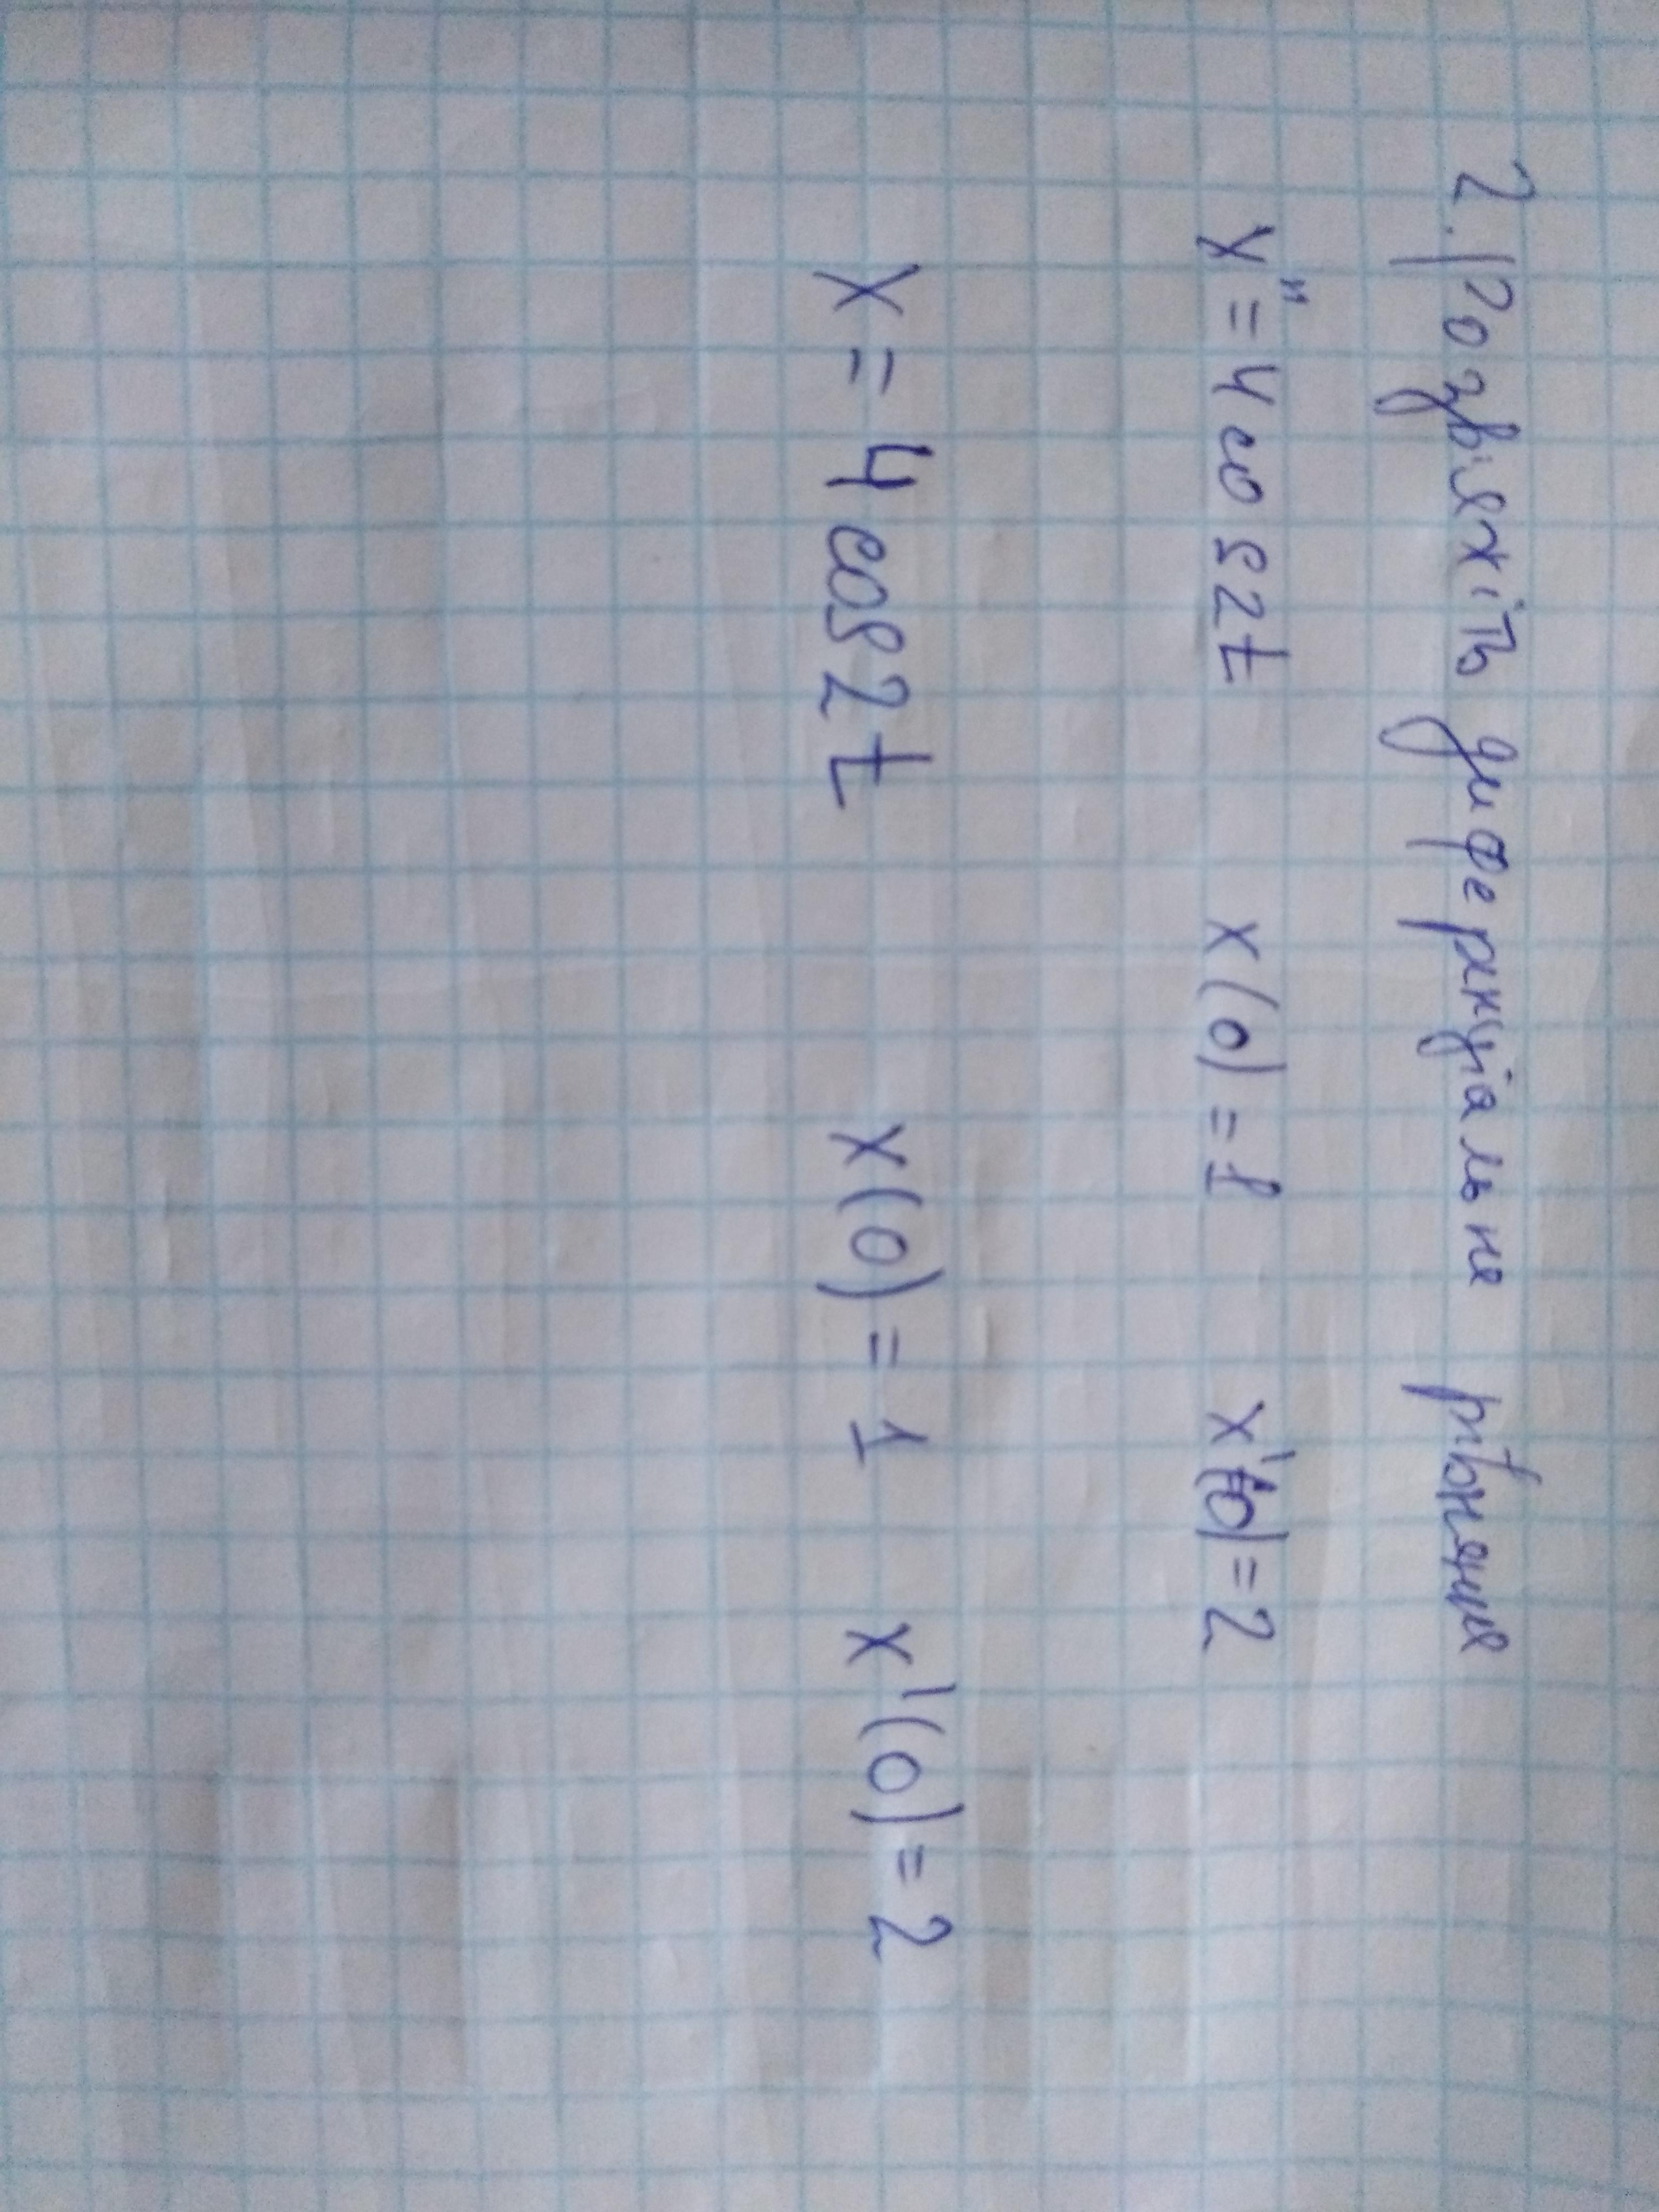 2. Розвяжіть диференціальне рівняння
x" = 4 cos 2t x(0) = 1 x'(0) = 2
x = 4 cos 2t x(0) = 1 x'(0) = 2